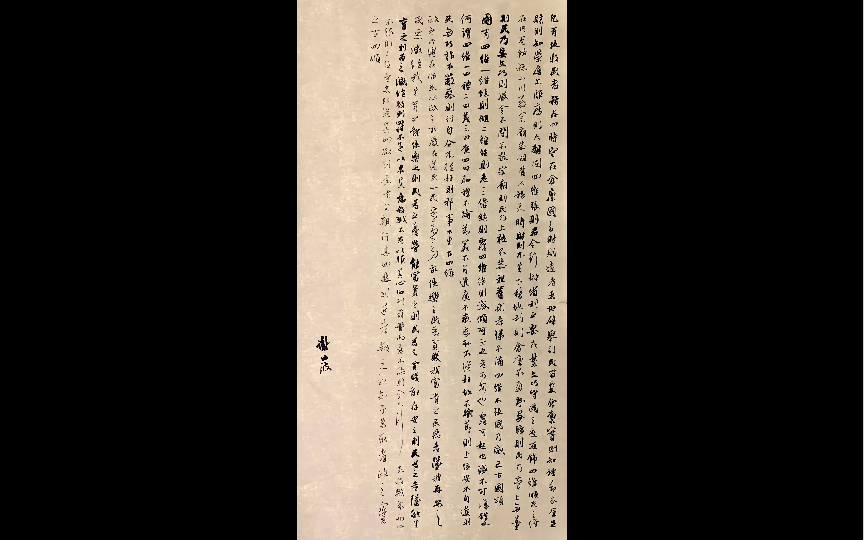 凡有地牧民者務在四時守在倉廩國多財則遠者來地辟舉則民留處倉廩實則知禮節衣食足
則知榮辱上服度則六親固四維張則君令行故省刑之要在禁文巧守國之度在飾四維順民之經
在明鬼神祇山川敬宗廟恭祖舊不務天時則財不生不務地利則倉廩不盈野蕪曠則民乃菅上無量
則民乃妄文巧則威令不聞不敬宗廟則民乃上校不恭祖舊則孝悌不備四維不張國乃滅亡右國頌
國有四維一維絕則傾二維絕則危三維絕則覆四維絕則滅傾可正也危可安也覆可起也滅不可復錯也
何謂四維一曰禮二曰義三曰廉四曰恥禮不踰節義不自進廉不蔽惡恥不從枉故不踰節則上位安不自進則
民無巧詐不蔽惡則行自全不從枉則邪事不生右四維
政之所興在順民心政之所廢在逆民心民惡憂勞我佚樂之民惡貧賤我富貴之民惡危墜我存安之民
惡滅絕我生育之能佚樂之則民為之憂勞能富貴之則民為之貧賤能存安之則民為之危墜能生
育之則民為之滅絕故刑罰不足以畏其意殺戮不足以服其心故刑罰繁而意不恐則令不行矣殺戮眾而心
不服則上位危矣故從其四欲則遠者自親行其四惡則近者叛之故知予之為取者政之寶也
右四順